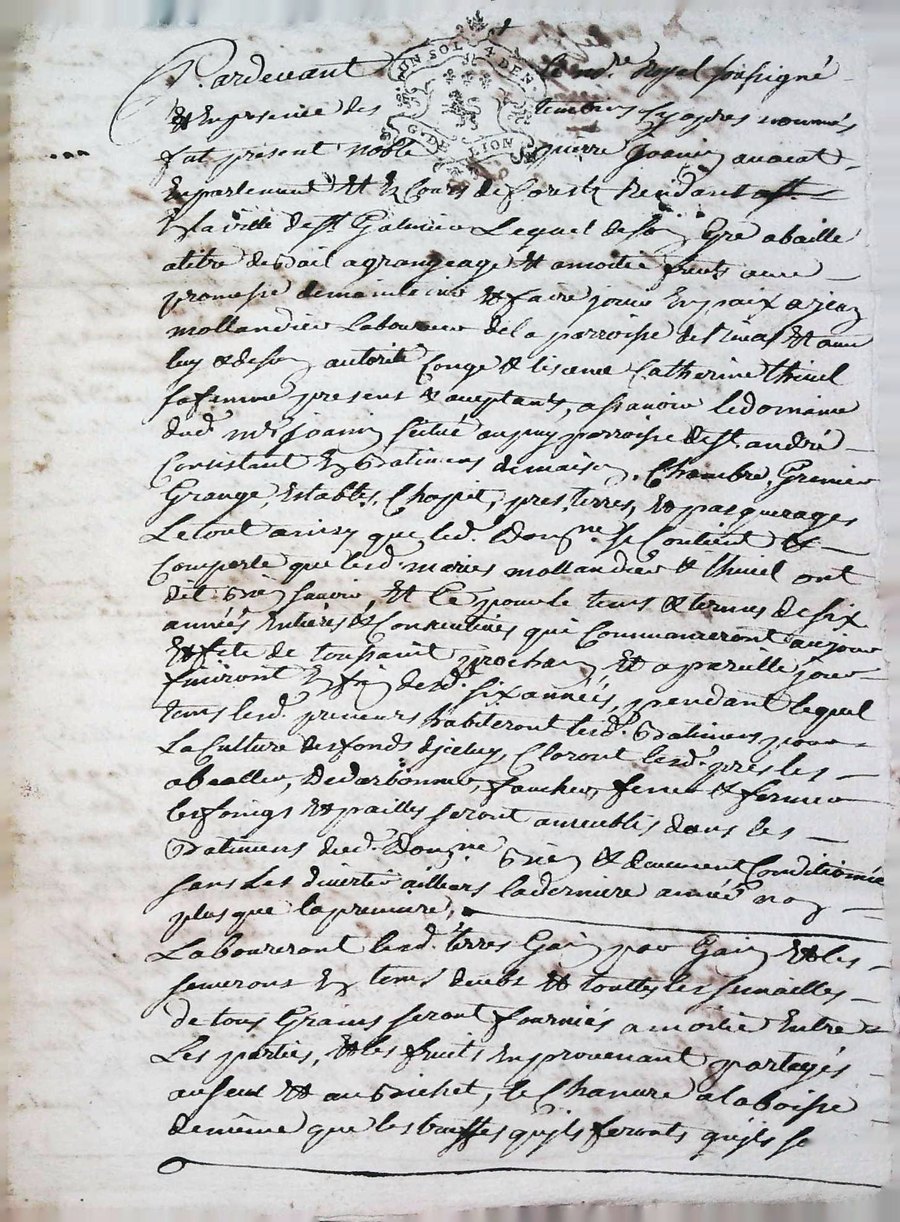 Pardevant le no.re Royal soussigné
& En presence des temoins cy apres nommés
fut present noble pierre Joanin avocat
En parlement Et Es Cours de forests Residant
En la ville de st Galmier Lequel de son Gré a baillé
a titre de Bail a grangeage Et a moitié fruits avec
promesse de maintenir Et faire jouir En paix a jean
mollandier Laboureur de la parroisse de Et avec
luy & de son autorité Congé & licence Catherine thivel
sa femme presens & acceptants, assavoir le domaine
dud. mr. Joanin scitué au puy parroisse de st. andré
Consistant En Batimens de maison, Chambre, Grenier
Grange, Estables, Chapit, pres, terres, Et pasquerages
Le tout ainsy que led. Dom.ne se Contient &
Comporte que lesd. mariés mollandier & thivel ont
dit Bien sçavoir, Et Ce pour le tems & termes de six
années Entieres & Consecutives qui Commanceront au jour
Et fête de toussaint prochain Et a pareille jour
finiront En fin desd. six années, pendant lequel
tems lesd. preneurs habiteront lesd. Batimens pour
La Culture des fonds d'jceluy, Cloront lesd. prés les
abealler, Dedarbonner, faucher, fener & fermer
les foings Et pailles seront ameublés dans les
Batimens dud. Dom.ne Bien & duement Conditionnés
sans Les divertir ailliers la derniere année non
plus que la premiere,
Laboureront lesd. terres Gain par Gain Et les
semerons En tems deubs Et touttes les semailles
de tous Grains seront fournies a moitié Entre
Les parties, Et les fruits En provenant partagés
au seux Et au Bichet, le Chanvre a la boisse
de même que les truffes qu'jls feront qu'jls se
UN SOL 4 DEN.
G. DE LION